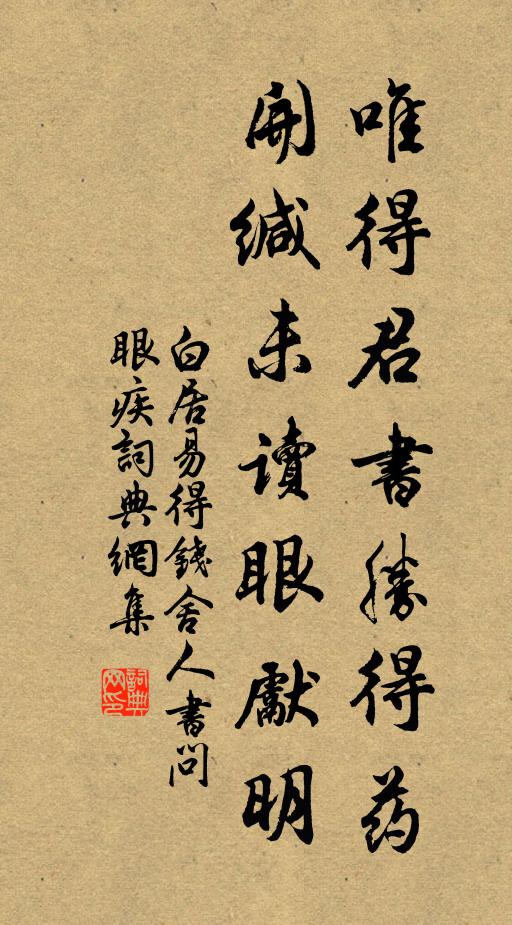 唯得君書勝得药
開緘未讀眼獻明
白居易得錢舍人書問
眼疾詞典網集
詞典
网印